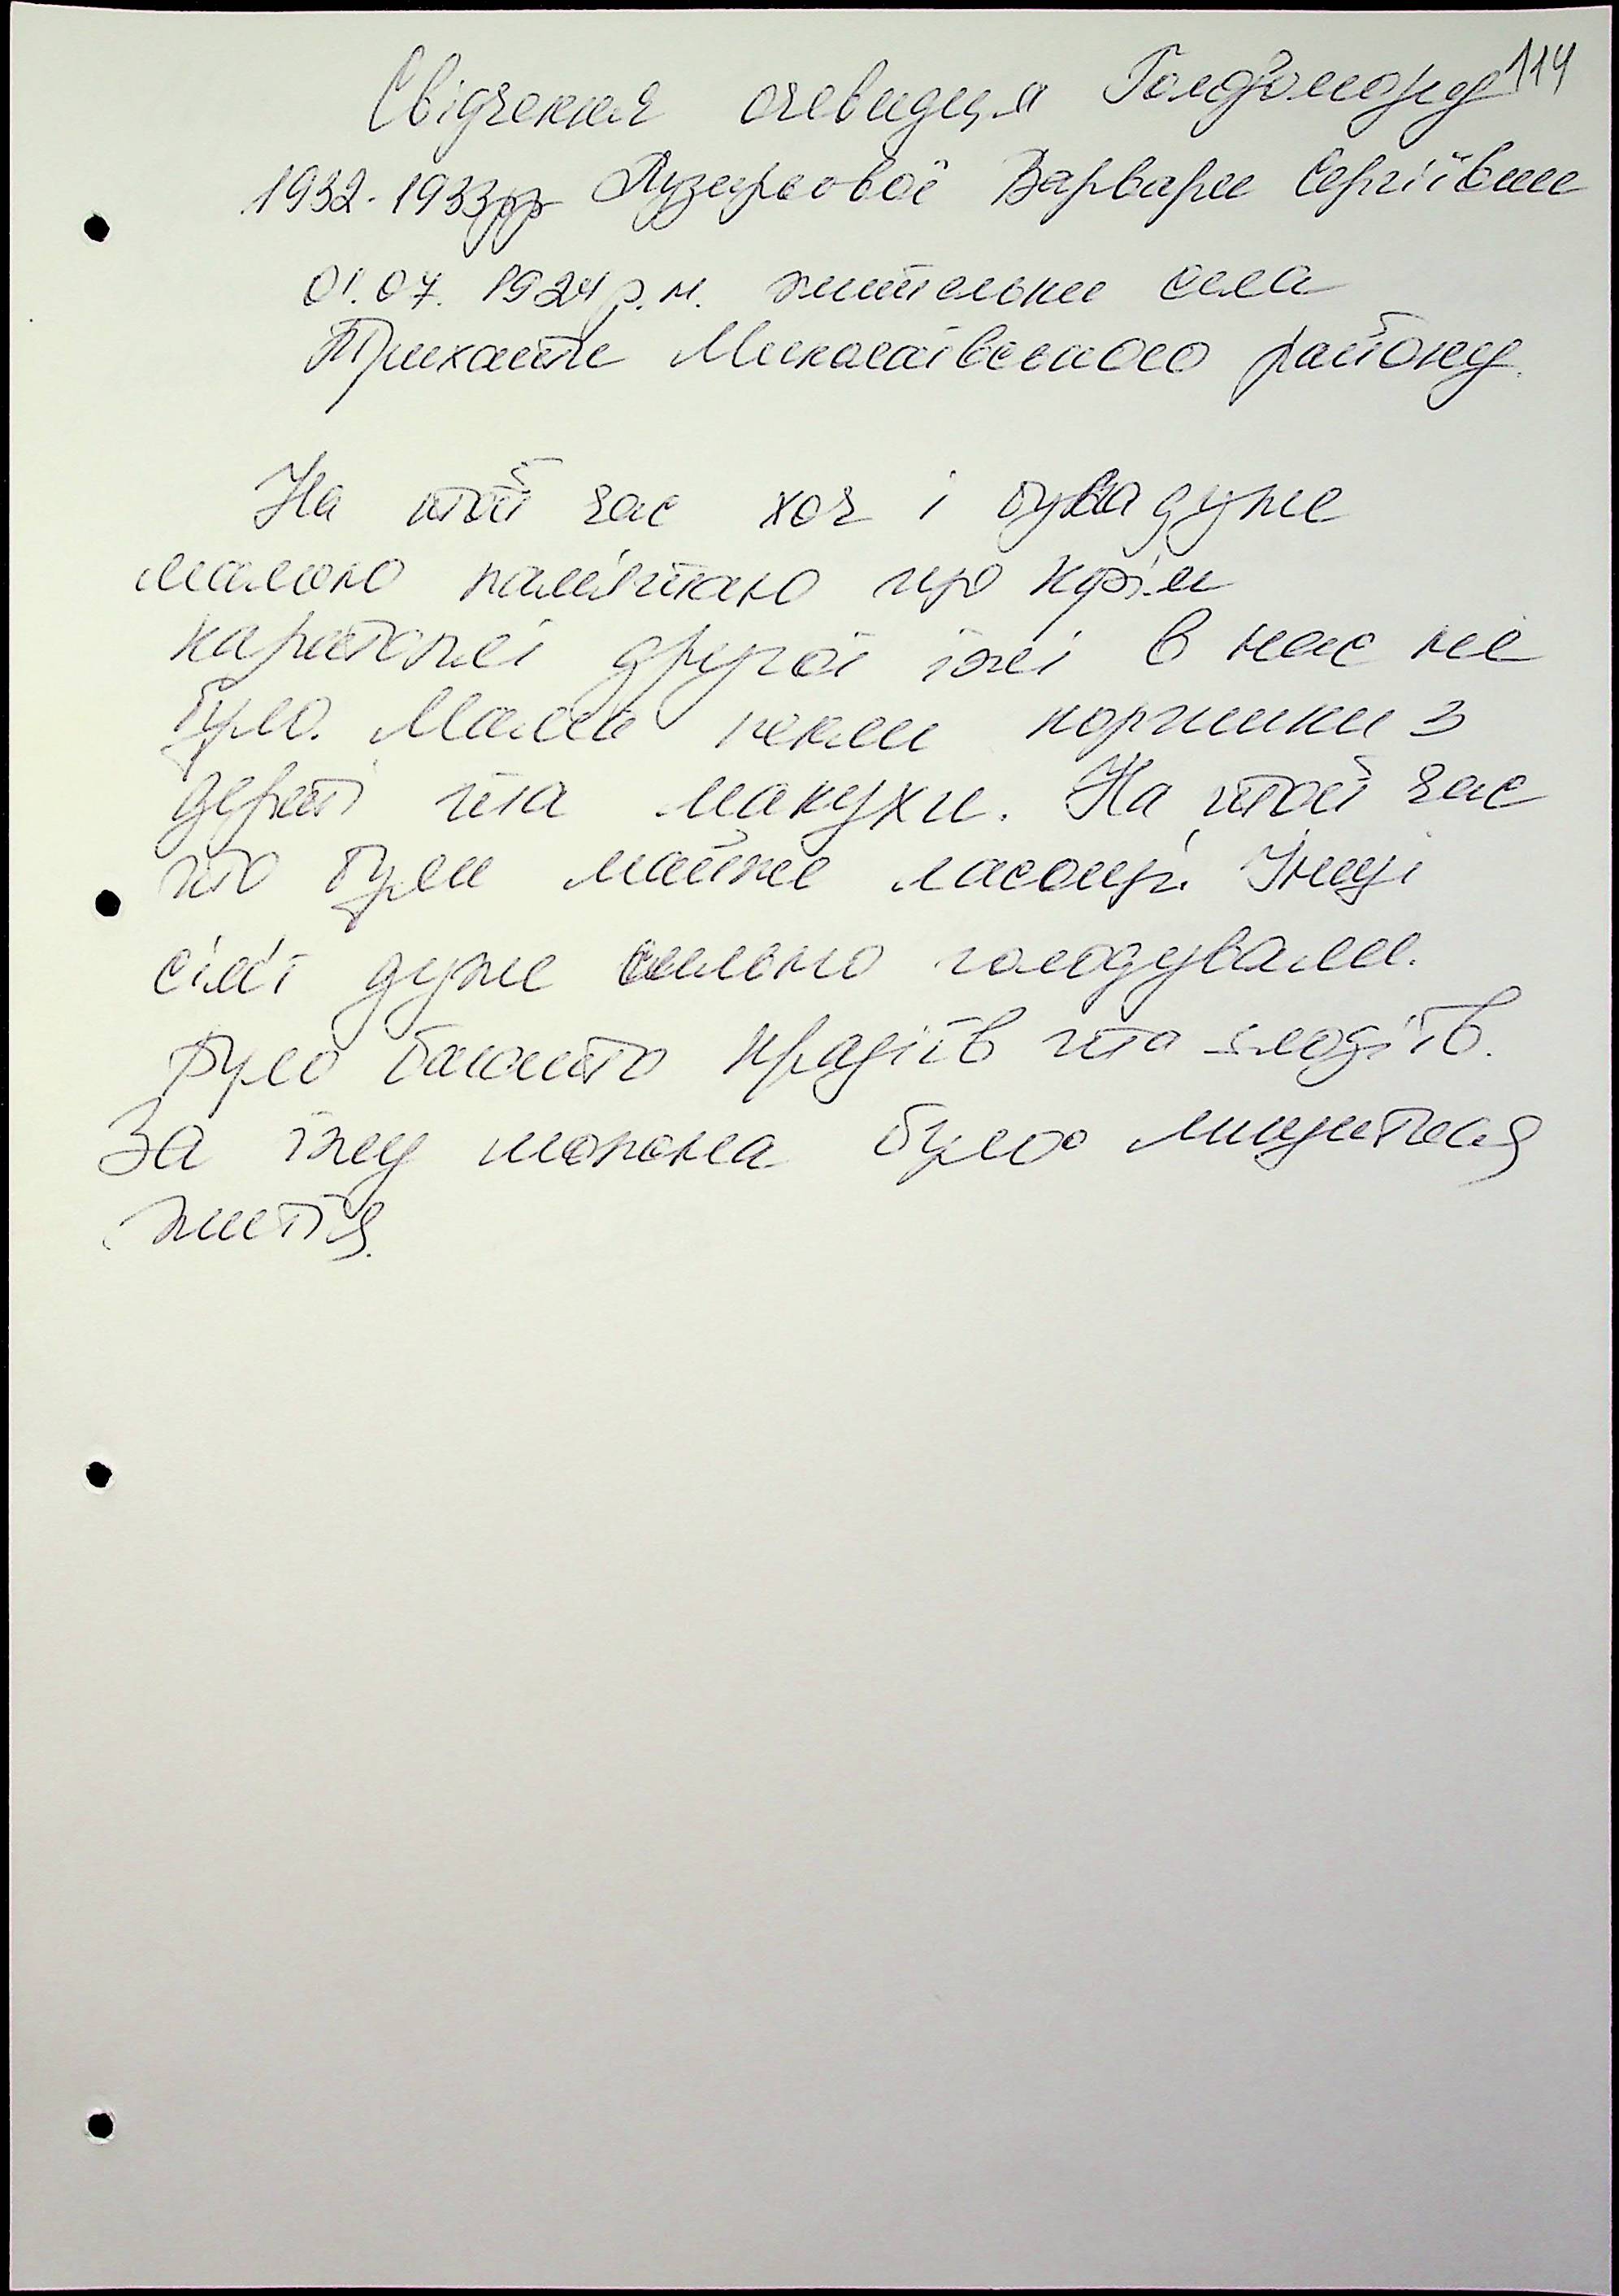 Свідчення очевидця Голодомору 114
1932-1933рр Пузирьової Варвари Сергіївни
01.07.1924 р.н. жительки села
Трихати Миколаївського району.
На той час хоч і була дуже
малою пам'ятаю що крім
картоплі другої їжі в нас не
було. Мама пекли коржики з
дерті та макухи. На той час
то були майже ласощі. Інші
сім'ї дуже сильно голодували.
Було багато крадіїв та злодіїв.
За їжу можна було лишитися
життя.